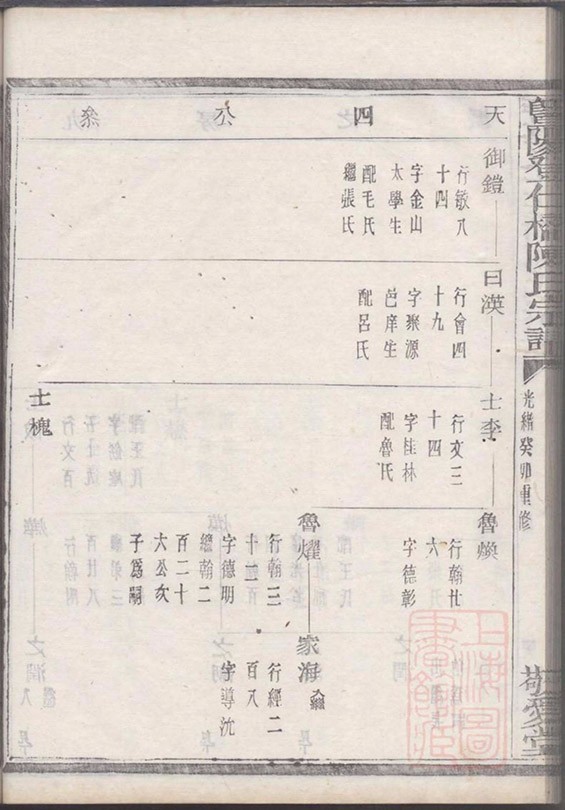 暨陽登仕橋陳氏宗譜
光緒癸卯重修
敬愛堂
天四公系
御鎧
行敏八
十四
字金山
太學生
配毛氏
繼張氏
日渶
行會四
十九
字聚源
邑庠生
配呂氏
士李
行文三
十四
字桂林
配魯氏
魯煥
行翰廿
六
字德彰
魯燿
行翰三
十二
字德明
繼翰二
百二十
大公次
子為嗣
家海
入繼
行經二
百八
字導沈
士槐
上海圖書館藏